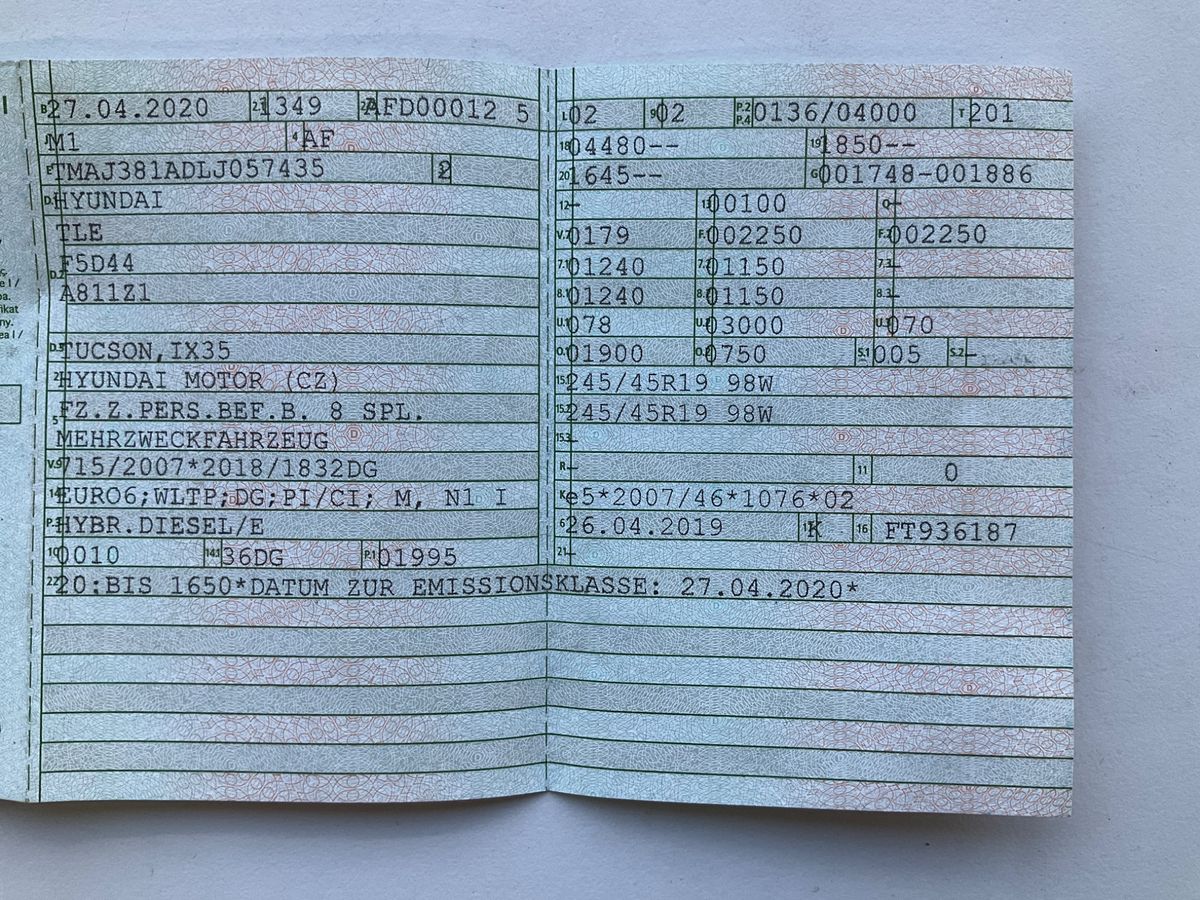 B 27.04.2020 2.1 1349 2.2 AFD00012 5
J M1 4 AF
E TMAJ381ADLJ057435 3 2
D.1 HYUNDAI
TLE
D.2 F5D44
A811Z1
D.3 TUCSON,IX35
2 HYUNDAI MOTOR (CZ)
5 FZ.Z.PERS.BEF.B. 8 SPL.
MEHRZWECKFAHRZEUG
V.9 715/2007*2018/1832DG
14 EURO6;WLTP;DG;PI/CI; M, N1 I
P.3 HYBR.DIESEL/E
10 0010 14.1 36DG P.1 01995
L 02 9 02 P.2 P.4 0136/04000 T 201
18 04480-- 19 1850--
20 1645-- G 001748-001886
12 - 13 00100 Q -
V.7 0179 F.1 002250 F.2 002250
7.1 01240 7.2 01150 7.3 -
8.1 01240 8.2 01150 8.3 -
U.1 078 U.2 03000 U.3 070
O.1 01900 O.2 0750 S.1 005 S.2 -
15.1 245/45R19 98W
15.2 245/45R19 98W
15.3 -
R - 11 0
K e5*2007/46*1076*02
6 26.04.2019 17 K 16 FT936187
21 -
22 20:BIS 1650*DATUM ZUR EMISSIONSKLASSE: 27.04.2020*